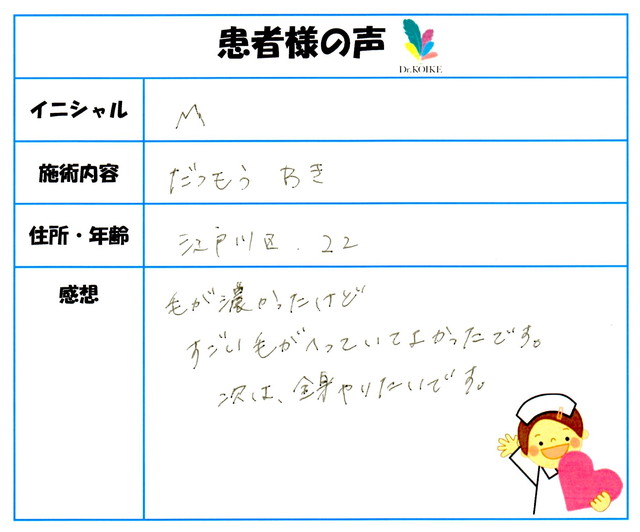 患者様の声
Dr.KOIKE
イニシャル M
施術内容 だつもう わき
住所・年齢 江戸川区.22
感想 毛が濃かったけど
すごい毛がへっていてよかったです。
次は、全身やりたいです。